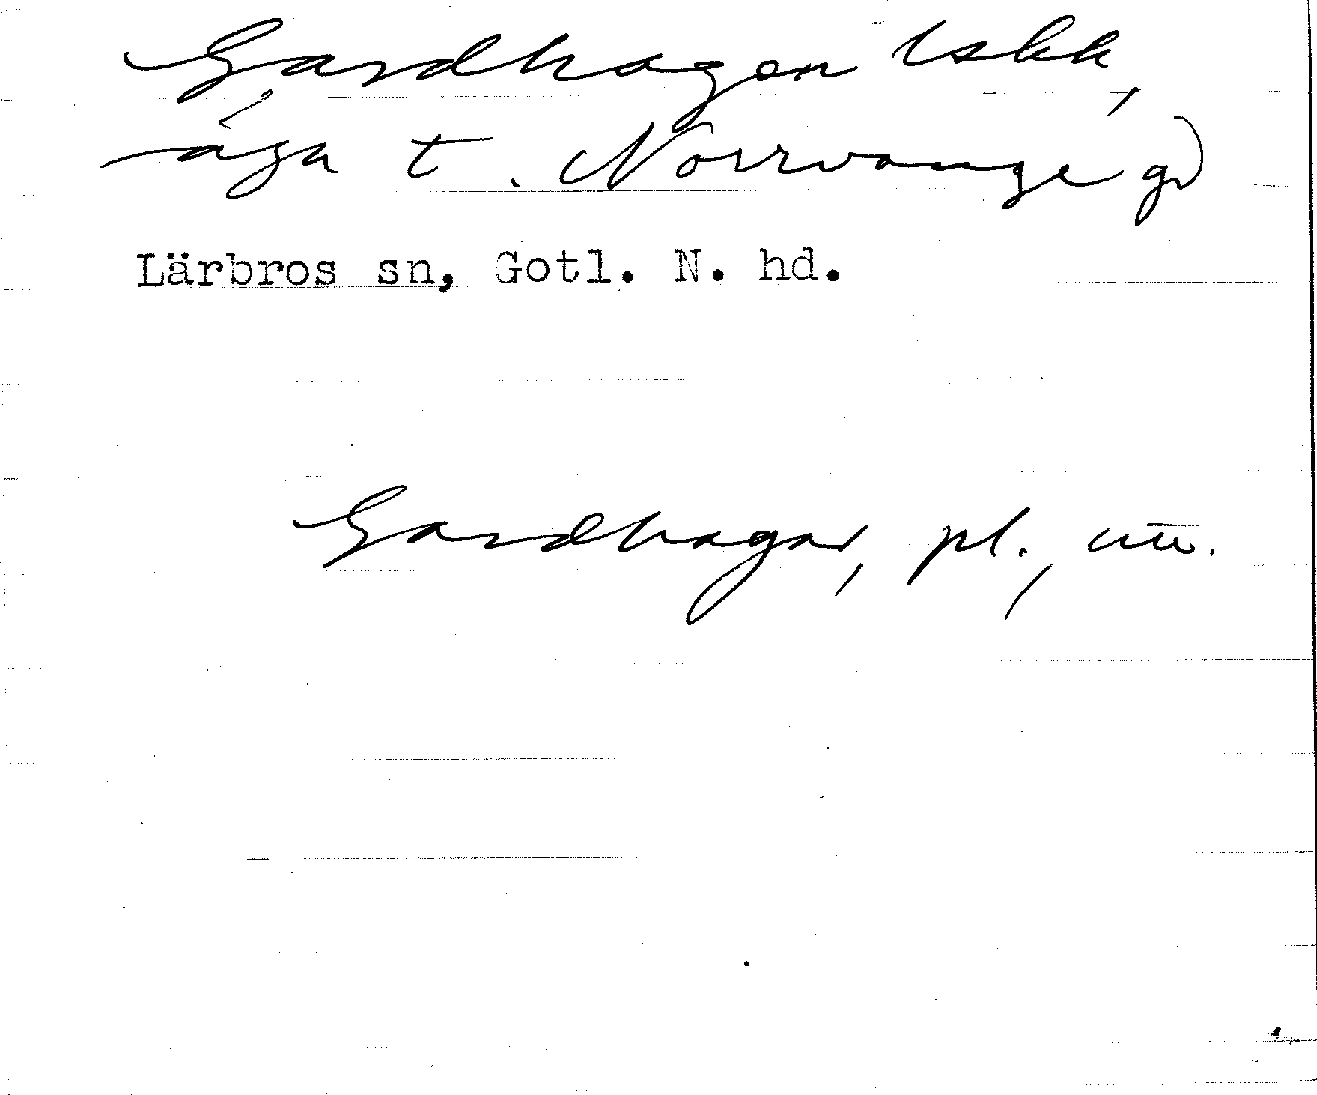 Gardhagen lskh,
äga t. Norrvange gd
Lärbros sn, Gotl. N. hd.
Gardhagar, pl.,